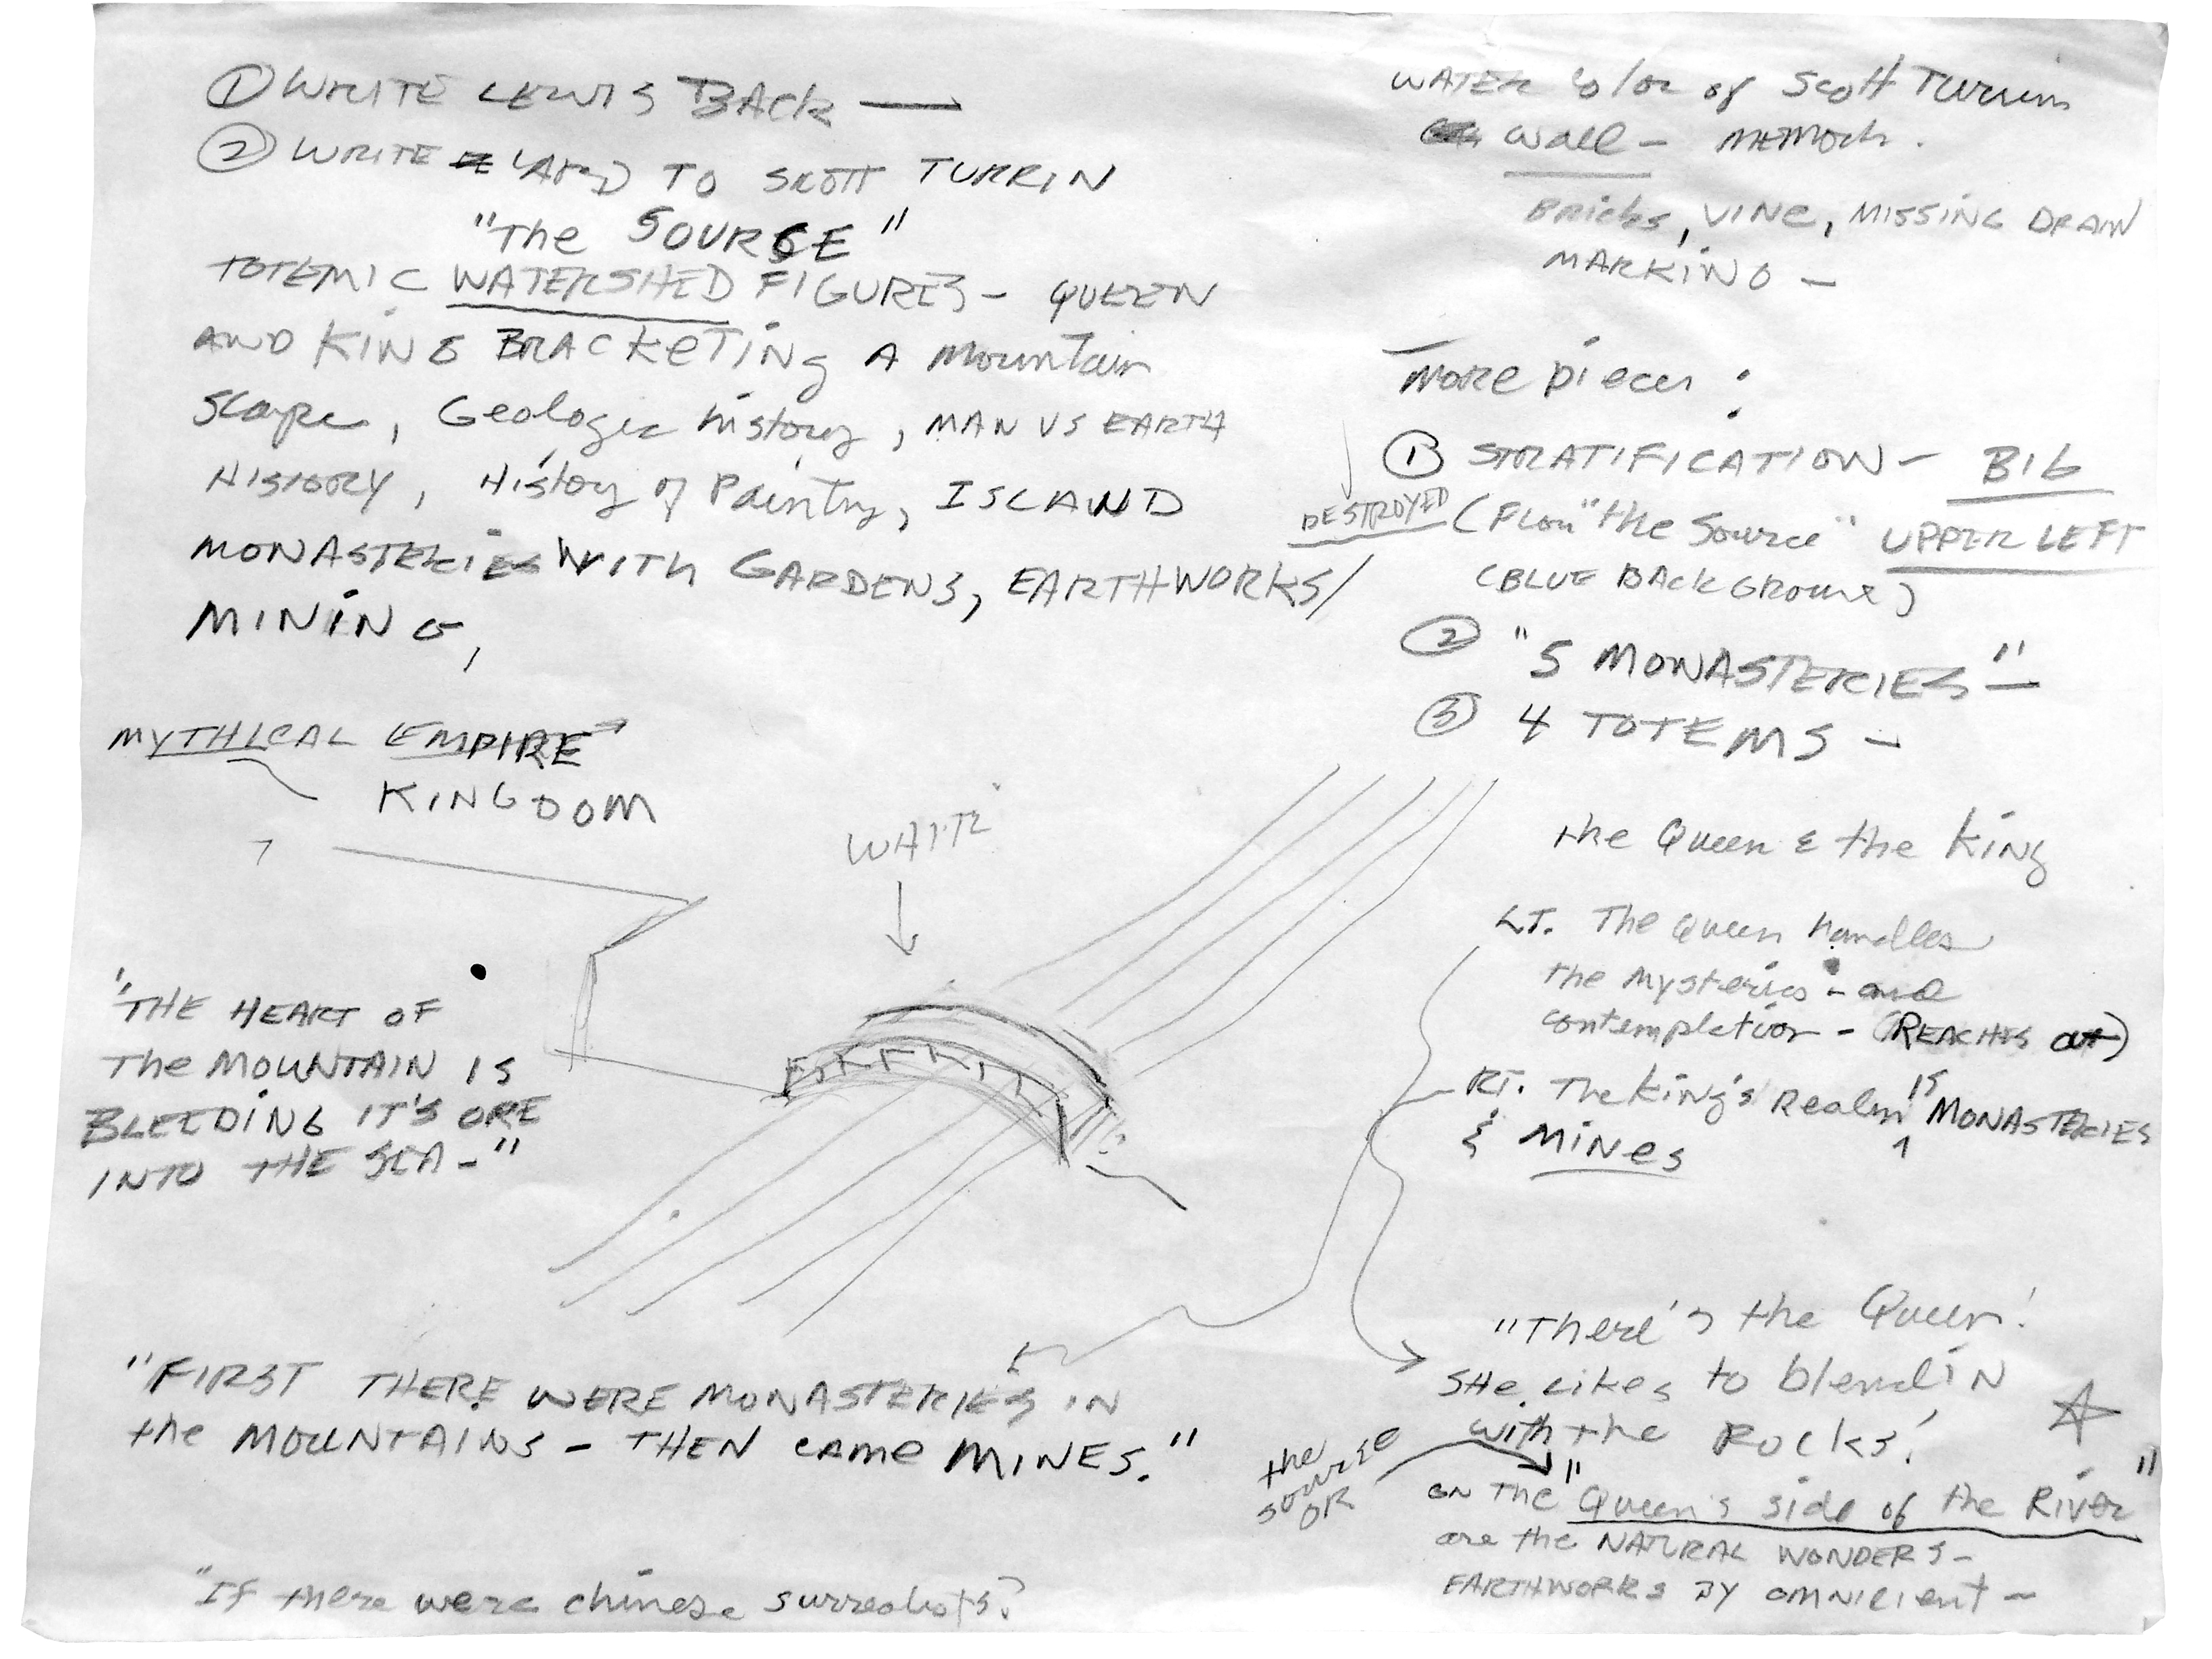 ① WRITE LEWIS BACK —
② WRITE TO SCOTT TURRIN
"The SOURCE"
TOTEMIC WATERSHED FIGURES - QUEEN
AND KING BRACKETING A Mountain
Scape, Geologic history, MAN VS EARTH
HISTORY, History of Painting, ISLAND
MONASTERIES WITH GARDENS, EARTHWORKS/
MINING,
MYTHICAL EMPIRE
KINGDOM
WHITE
"THE HEART OF
The MOUNTAIN IS
BLEEDING IT'S ORE
INTO THE SEA -"
"FIRST THERE WERE MONASTERIES IN
the MOUNTAINS - THEN CAME MINES."
"If there were chinese surrealists?
WATER Color of Scott Turrin
Wall -
Bricks, VINE, MISSING DRAIN
MARKING -
More pieces :
① STRATIFICATION - BIG
DESTROYED (From "the Source" UPPER LEFT
(BLUE BACKGROUND)
② "5 MONASTERIES" -
③ 4 TOTEMS -
the Queen & the King
LT. The Queen handles
the mysteries - and
contemplation - (REACHES out)
RT. The King's Realm is MONASTERIES
& MINES
"There's the Queen!
SHE Likes to blend IN
with the ROCKS!
the
source
OR
ON THE "Queen's side of the River"
are the NATURAL WONDERS -
EARTHWORKS BY OMNICIENT -